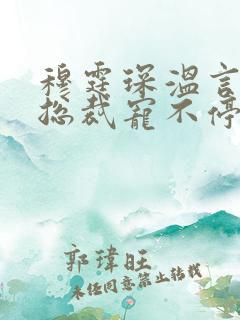 穆霆琛温言
总裁宠不停
郭瑋旺
未经同意禁止转载